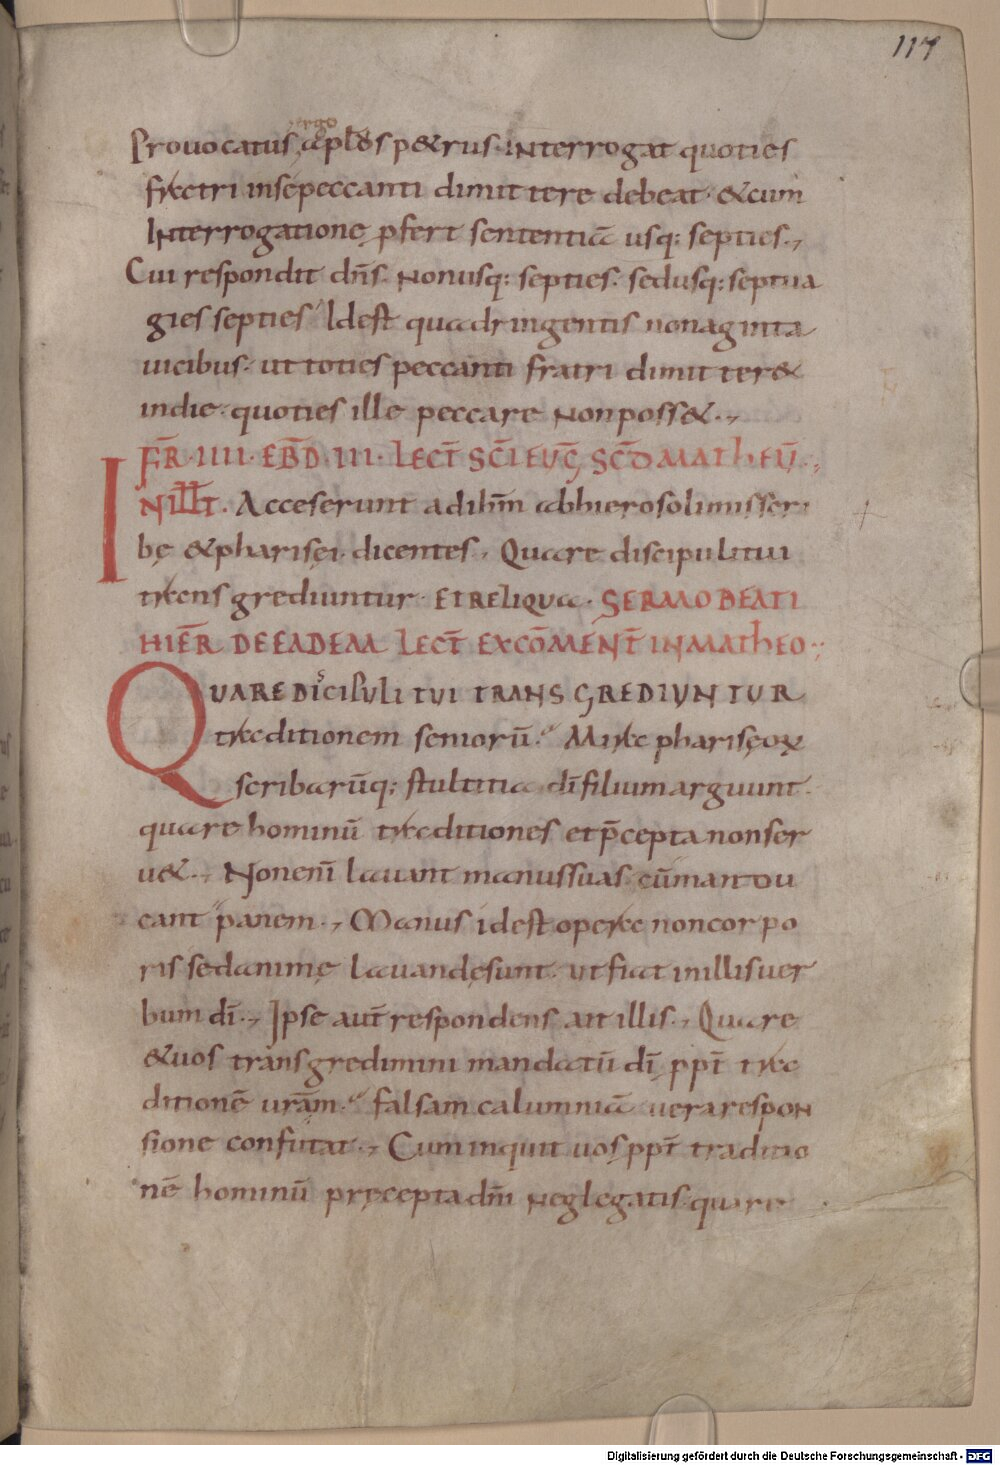 117
ergo
Provocatus apls p&rus interrogat quoties
fratri insepeccanti dimittere debeat · &cum
Interrogatione pfert sententiā usq: septies.,
Cui respondit dn̄s. Nonusq: septies. sedusq: septua
gies septies Idest quadringentis nonaginta
uicibus. ut toties peccanti fratri dimitter&
indie. quoties ille peccare Nonposs&.,
FR̄ · IIII · EBD̄ · III · LECT̄ SC̄I EUḠ SC̄DMATHEŪ.,
INILLT̄. Acceserunt adihm̄ abhierosolimisscri
bę &pharisęi. dicentes. Quare discipulitui
transgrediuntur · ETRELIQUA · SERMOBEATI
HIER̄ DEEADEM LECT̄ EXCOMENT̄ INMATHEO
QUAREDISCIPULI TUI TRANSGREDIUNTUR
traditionem seniorū. Mira pharisęoꝝ
scribarūq; stultitia dī filium arguunt
quare hominū traditiones etp̄cepta nonser
u&., Nonenī lauant manussuas cūmandu
cant panem., Manus idest opera noncorpo
ris sedanimę lauandęsunt. ut fiat inillisuer
bum dī., Ipse aut̄ respondens ait illis., Quare
&uos transgredimini mandatū dī ppt̄ tra
ditionē urām. falsam calumniā uerarespon
sione confutat., Cum inquit uos ppt̄ traditio
nē hominū pręcepta dn̄i Neglegatis. quare
Digitalisierung gefördert durch die Deutsche Forschungsgemeinschaft - DFG